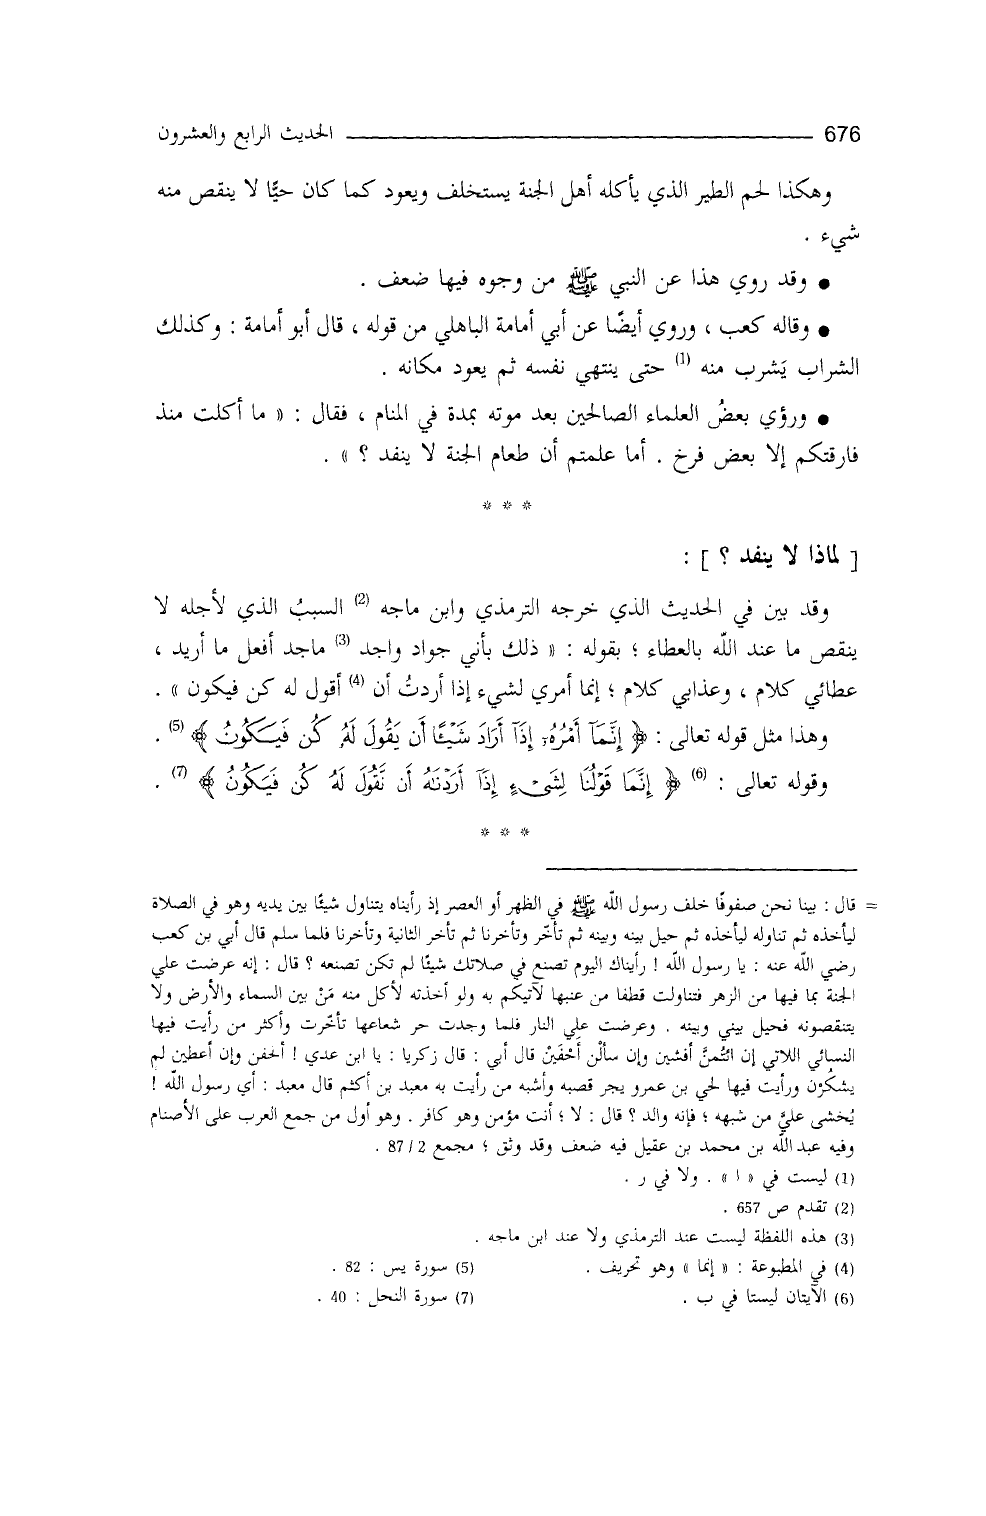 676 الحديث الرابع والعشرون
وهكذا لحم الطير الذي يأكله أهل الجنة يستخلف ويعود كما كان حيًّا لا ينقص منه
شيء .
● وقد روي هذا عن النبي ﷺ من وجوه فيها ضعف .
● وقاله كعب ، وروي أيضًا عن أبي أمامة الباهلي من قوله ، قال أبو أمامة : وكذلك
الشراب يَشرب منه (1) حتى ينتهي نفسه ثم يعود مكانه .
● ورؤي بعضُ العلماء الصالحين بعد موته بمدة في المنام ، فقال : « ما أكلت منذ
فارقتكم إلا بعض فرخ . أما علمتم أن طعام الجنة لا ينفد ؟ » .
* * *
[ لماذا لا ينفد ؟ ] :
وقد بين في الحديث الذي خرجه الترمذي وابن ماجه (2) السببُ الذي لأجله لا
ينقص ما عند اللّه بالعطاء ؛ بقوله : « ذلك بأني جواد واجد (3) ماجد أفعل ما أريد ،
عطائي كلام ، وعذابي كلام ؛ إنما أمري لشيء إذا أردتُ أن (4) أقول له كن فيكون » .
وهذا مثل قوله تعالى : ﴿ إِنَّمَآ أَمْرُهُۥٓ إِذَآ أَرَادَ شَيْـًٔا أَن يَقُولَ لَهُۥ كُن فَيَكُونُ ﴾ (5) .
وقوله تعالى : (6) ﴿ إِنَّمَا قَوْلُنَا لِشَىْءٍ إِذَآ أَرَدْنَـٰهُ أَن نَّقُولَ لَهُۥ كُن فَيَكُونُ ﴾ (7) .
* * *
= قال : بينا نحن صفوفًا خلف رسول اللّه ﷺ في الظهر أو العصر إذ رأيناه يتناول شيئًا بين يديه وهو في الصلاة
ليأخذه ثم تناوله ليأخذه ثم حيل بينه وبينه ثم تأخّر وتأخرنا ثم تأخر الثانية وتأخرنا فلما سلم قال أبي بن كعب
رضي اللّه عنه : يا رسول اللّه ! رأيناك اليوم تصنع في صلاتك شيئًا لم تكن تصنعه ؟ قال : إنه عرضت علي
الجنة بما فيها من الزهر فتناولت قطفا من عنبها لآتيكم به ولو أخذته لأكل منه مَنْ بين السماء والأرض ولا
يتنقصونه فحيل بيني وبينه . وعرضت علي النار فلما وجدت حر شعاعها تأخّرت وأكثر من رأيت فيها
النسائي اللاتي إن ائتُمنَّ أفشين وإن سألْن أحْفَيَنْ قال أبي : قال زكريا : يا ابن عدي ! ألحفن وإن أعطين لم
يشكُرْن ورأيت فيها لحي بن عمرو يجر قصبه وأشبه من رأيت به معبد بن أكثم قال معبد : أي رسول اللّه !
يُخشى عليَّ من شبهه ؛ فإنه والد ؟ قال : لا ؛ أنت مؤمن وهو كافر . وهو أول من جمع العرب على الأصنام
وفيه عبد اللّه بن محمد بن عقيل فيه ضعف وقد وثق ؛ مجمع 2 / 87 .
(1) ليست في « ا » . ولا في ر .
(2) تقدم ص 657 .
(3) هذه اللفظة ليست عند الترمذي ولا عند ابن ماجه .
(4) في المطبوعة : « إنما » وهو تحريف . (5) سورة يس : 82 .
(6) الآيتان ليستا في ب . (7) سورة النحل : 40 .